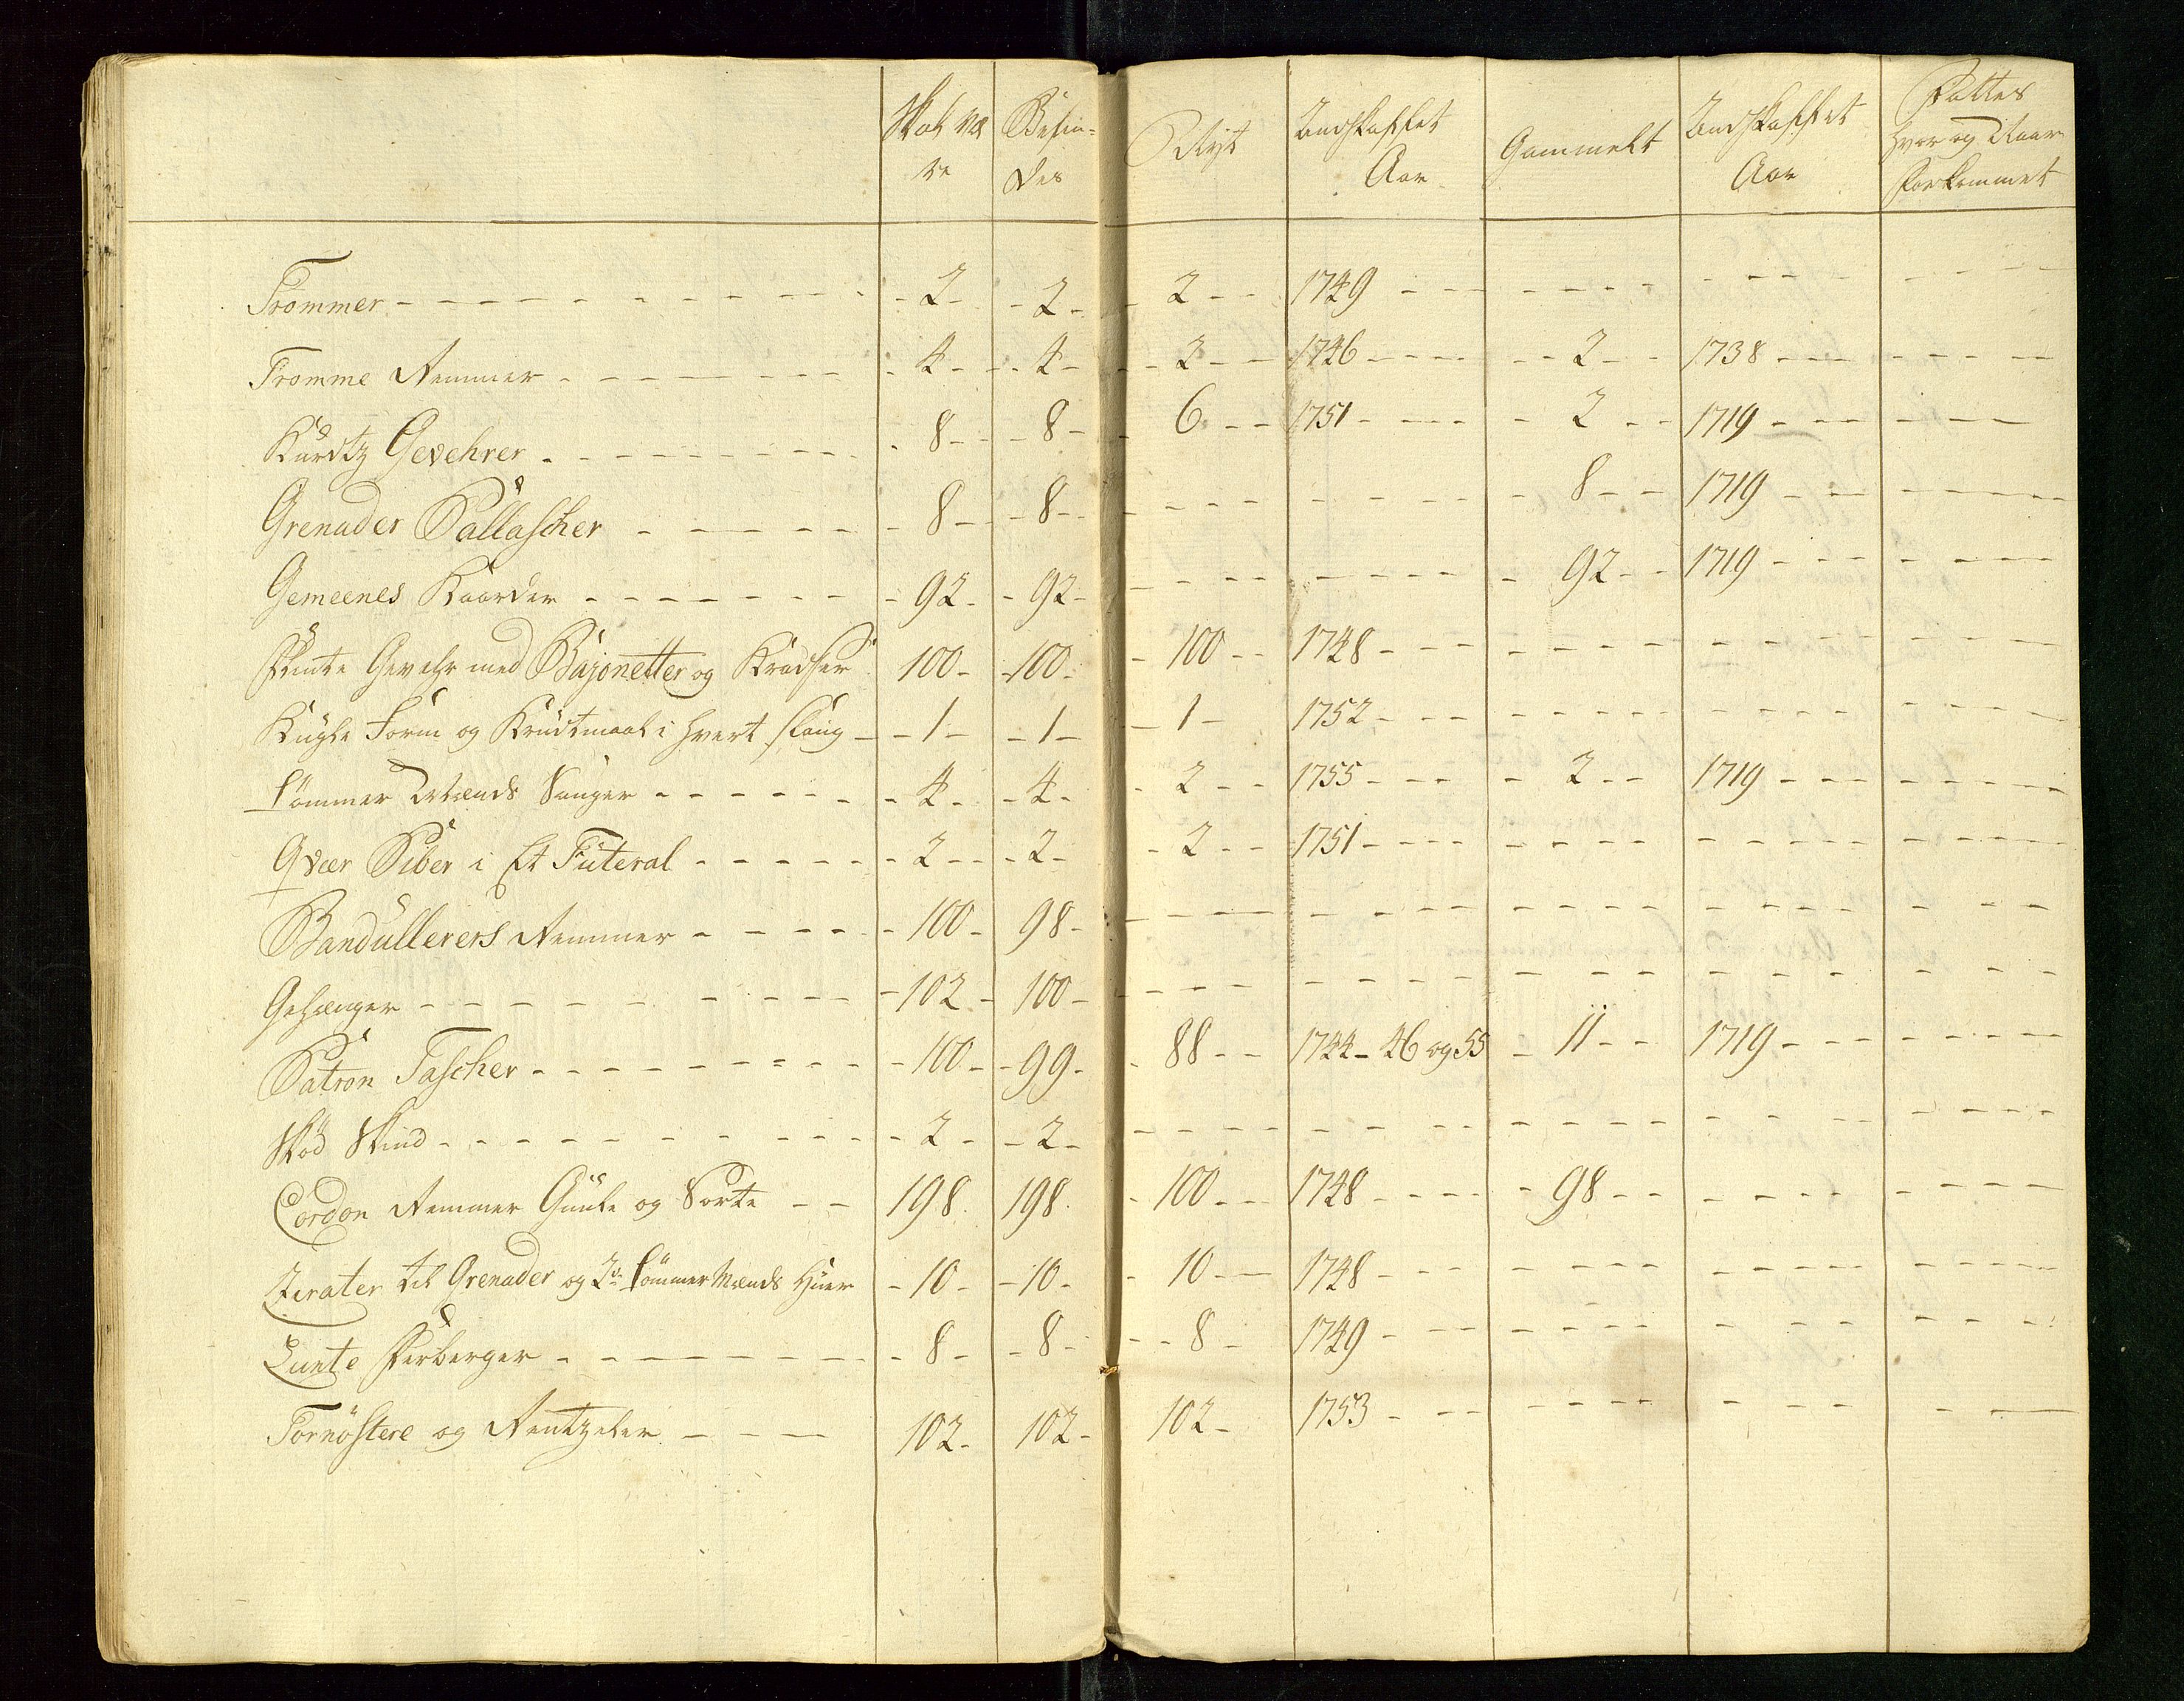 Skal væ Befin= Nyt Andskaffet Gammelt Andskaffet Fattes
re des Aar Aar hvor og Naar
Forkommet
Trommer 2 2 2 1749
Tromme Remmer 4 4 2 1746 2 1738
Kurtz Gevehrer 8 8 6 1751 2 1719
Grenader Pallascher 8 8 8 1719
Gemeenes Kaarder 92 92 92 1719
Flinte Gevehr med Bajonetter og Kradser 100 100 100 1748
Kugle Form og Krudtmaal i hvert slaug 1 1 1 1752
Tømmer Mænds Sauger 4 4 2 1755 2 1719
Qvær Piber i Et Futeral 2 2 2 1751
Bandullerers Remmer 100 98
Gehænger 102 100
Patron Tascher 100 99 88 1744 - 46 og 55 11 1719
Skød Skind 2 2
Cordon Remmer Guule og Sorte 198 198 100 1748 98
Zirater til Grenader og 2de Tømmer Mænds Huer 10 10 10 1748
Lunte Ferberger 8 8 8 1749
Tornøstere og Rentzeler 102 102 102 1753